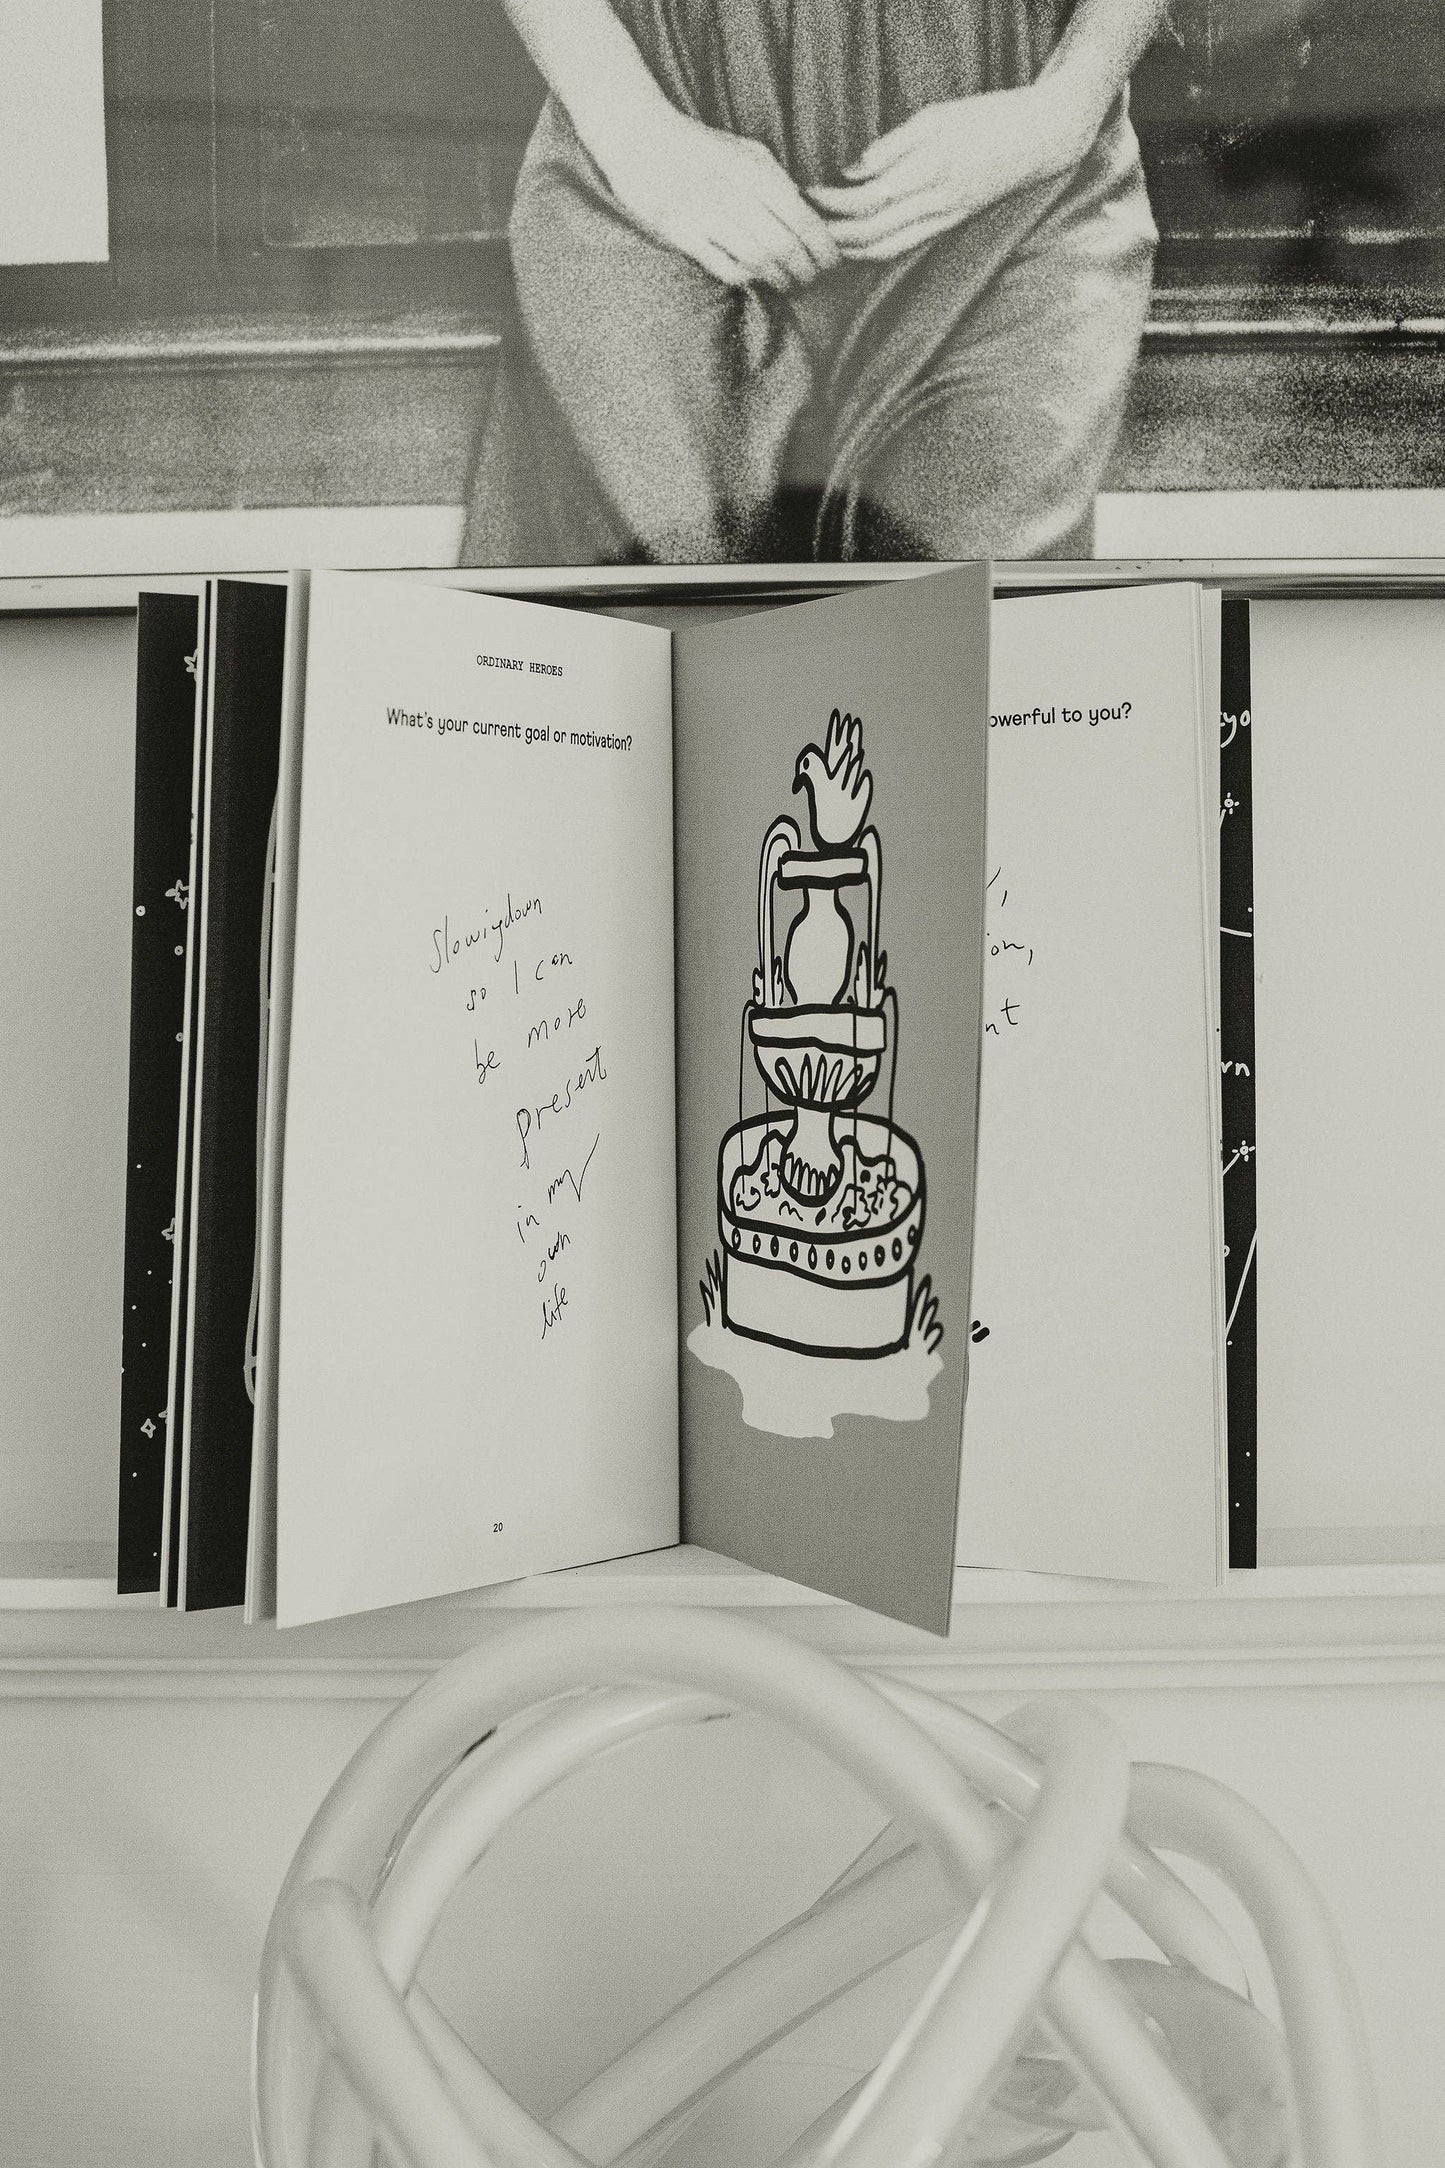 ORDINARY HEROES
What's your current goal or motivation?
Slowingdown
so I can
be more
present
in my
own
life
20
owerful to you?
on,
nt
yo
rn